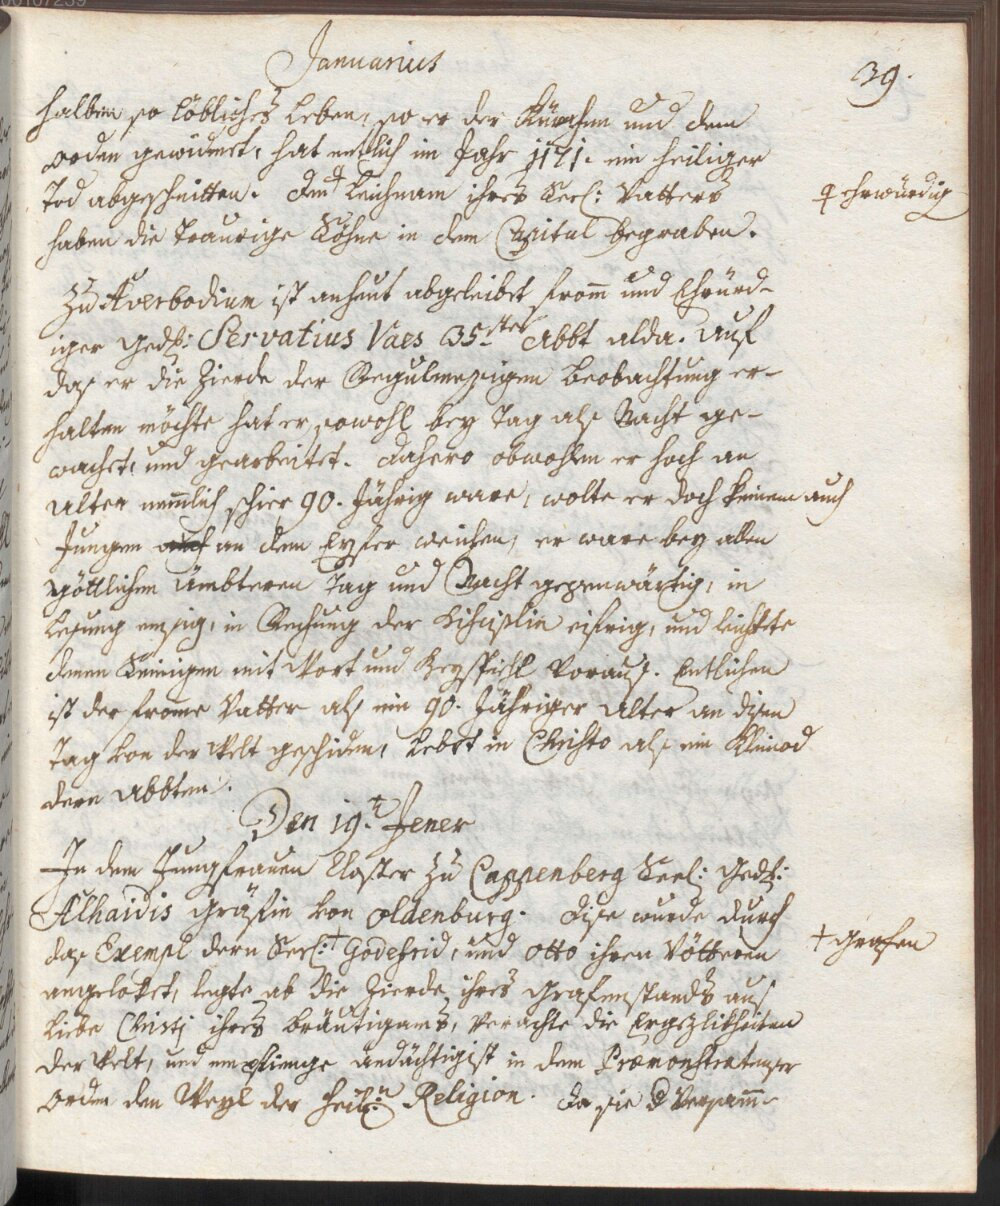 Januarius
39.
halben so löbliches Leben, so er der Kürchen und dem
orden gewidmet, hat entlich im Jahr 1171. ein heiliger
Tod abgeschnitten. Den Leichnam ihres Seel: Vatters
ehrwürdig
haben die traurige Söhne in dem Capitul begraben.
Zu Averbodium ist anheut abgeleibet from̄ und Ehrürd-
iger gedß: Servatius Vaes 35.ster Abbt alda. Auf
daß er die Zierde der Regulmeßigen beobachtung er-
halten möchte hat er sowohl bey Tag alß Nacht ge-
wachet, und gearbeitet. Dahero obwohlen er hoch an
Alter nem̄lich schier 90. Jährig ware, wolte er doch keinem auch
Jungen an dem Eyfer weichen, er ware bey allen
göttlichen Ämbteren Tag und Nacht gegenwärtig, in
Lesung emsig, in der eifrig, und leichtete
denen Seinigen mit Wort und Beyspihl Vorauß. Entlichen
ist der from̄e Vatter alß ein 90. Jähriger alter an disen
Tag von der Welt geschiden, lebet in Christo alß ein Kleinod
dern Abbten.
Den 19.t Jener
In dem Jungfrauen Closter zu Cappenberg Seel: gedß:
Alhaidis gräfin von oldenburg. Dise wurde durch
das Exempel dern Seel: † Godefrid, und otto ihren Vötteren
† grafen
angeloket, legte ab die Zierde ihres Grafenstands auß
Liebe Christi ihres bräutigams, verachte die Ergözlikheiten
der Welt, und empfienge andächtigist in dem Præmonstratenser
orden den Weyl der heil:n Religion. Da sie d Versam̄-